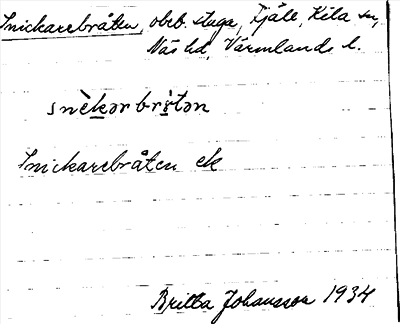 Snickarebråten, obeb. stuga, Fjäll, Kila sn,
Näs hd, Värmlands l.
snèkərbrɷ̀tən
Snickarebråten ek
Britta Johansson 1934